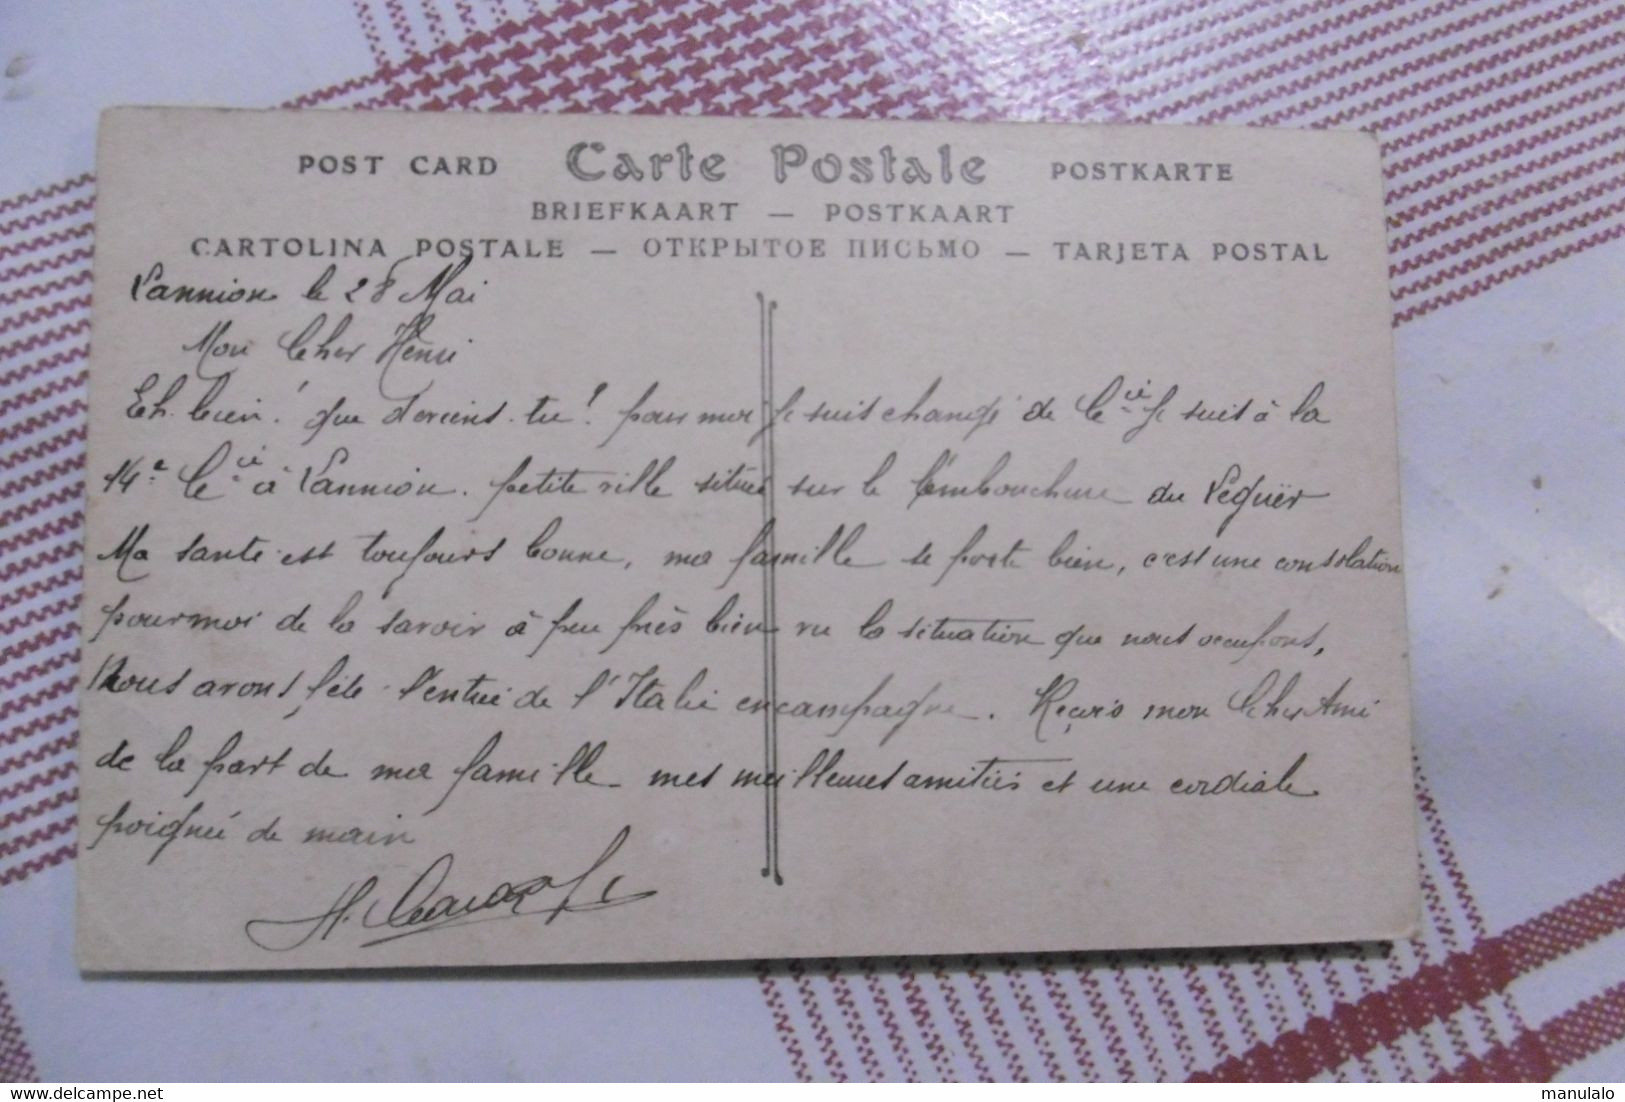 POST CARD Carte Postale POSTKARTE
BRIEFKAART — POSTKAART
CARTOLINA POSTALE — ОТКРЫТОЕ ПИСЬМО — TARJETA POSTAL
Lannion le 28 Mai
Mon Cher Henri
Eh bien! que deviens-tu! pour moi je suis changé de Cie je suis à la
14e Cie à Lannion. petite ville située sur le l'embouchure du Léguër
Ma santé est toujours bonne, ma famille se porte bien, c'est une consolation
pour moi de la savoir à peu près bien vu la situation que nous occupons,
Nous avons fêté l'entrée de l'Italie en campagne. Reçois mon Cher Ami
de la part de ma famille mes meilleures amitiés et une cordiale
poignée de main
H.
manulalo
www.delcampe.net